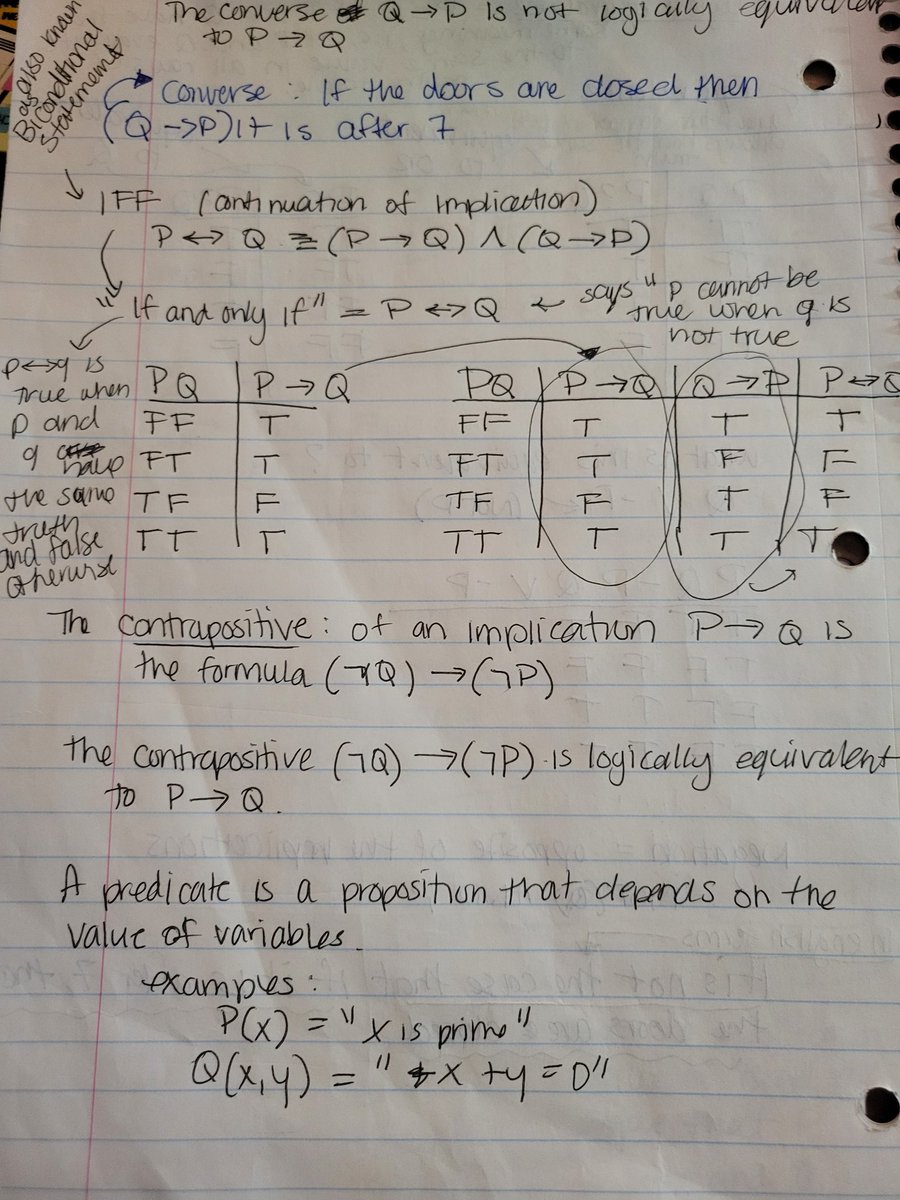 The converse Q → P is not logically equivalent
to P → Q
also known
as
Biconditional
Statements
Converse : If the doors are closed then
(Q → P) It is after 7
IFF (continuation of implication)
P ↔ Q ≡ (P → Q) ∧ (Q → P)
"If and only if" = P ↔ Q ← says "p cannot be
true when q is
not true
p ↔ q is
true when
p and
q have
the same
truth
and false
otherwise
P Q | P → Q
F F | T
F T | T
T F | F
T T | T
P Q | P → Q | Q → P | P ↔ Q
F F | T | T | T
F T | T | F | F
T F | F | T | F
T T | T | T | T
The contrapositive : of an implication P → Q is
the formula (¬Q) → (¬P)
the contrapositive (¬Q) → (¬P) is logically equivalent
to P → Q.
A predicate is a proposition that depends on the
value of variables.
examples :
P(x) = "x is prime"
Q(x,y) = "x + y = 0"